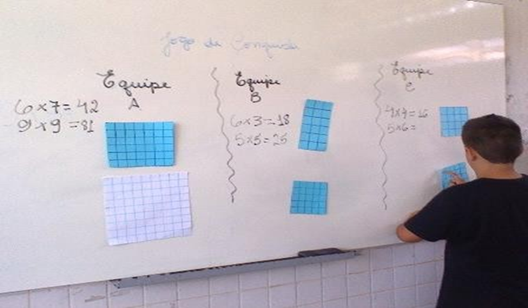 Jogo da Conquista
Equipe
A
6x7=42
9x9=81
Equipe
B
6x3=18
5x5=25
Equipe
C
4x4=16
5x6=